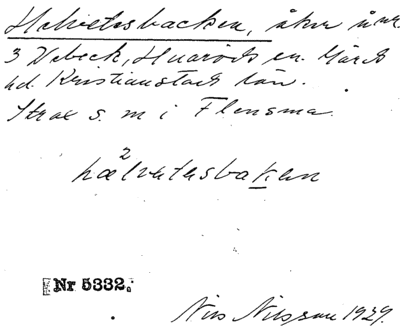 Helvetesbacken, åker å nr
3 Debeck, Huaröds sn. Gärds
hd. Kristianstads län.
Strax s. m i Flensma.
hæ²lvetesbaken
Nr 5332.
Nils Nilsson 1929.